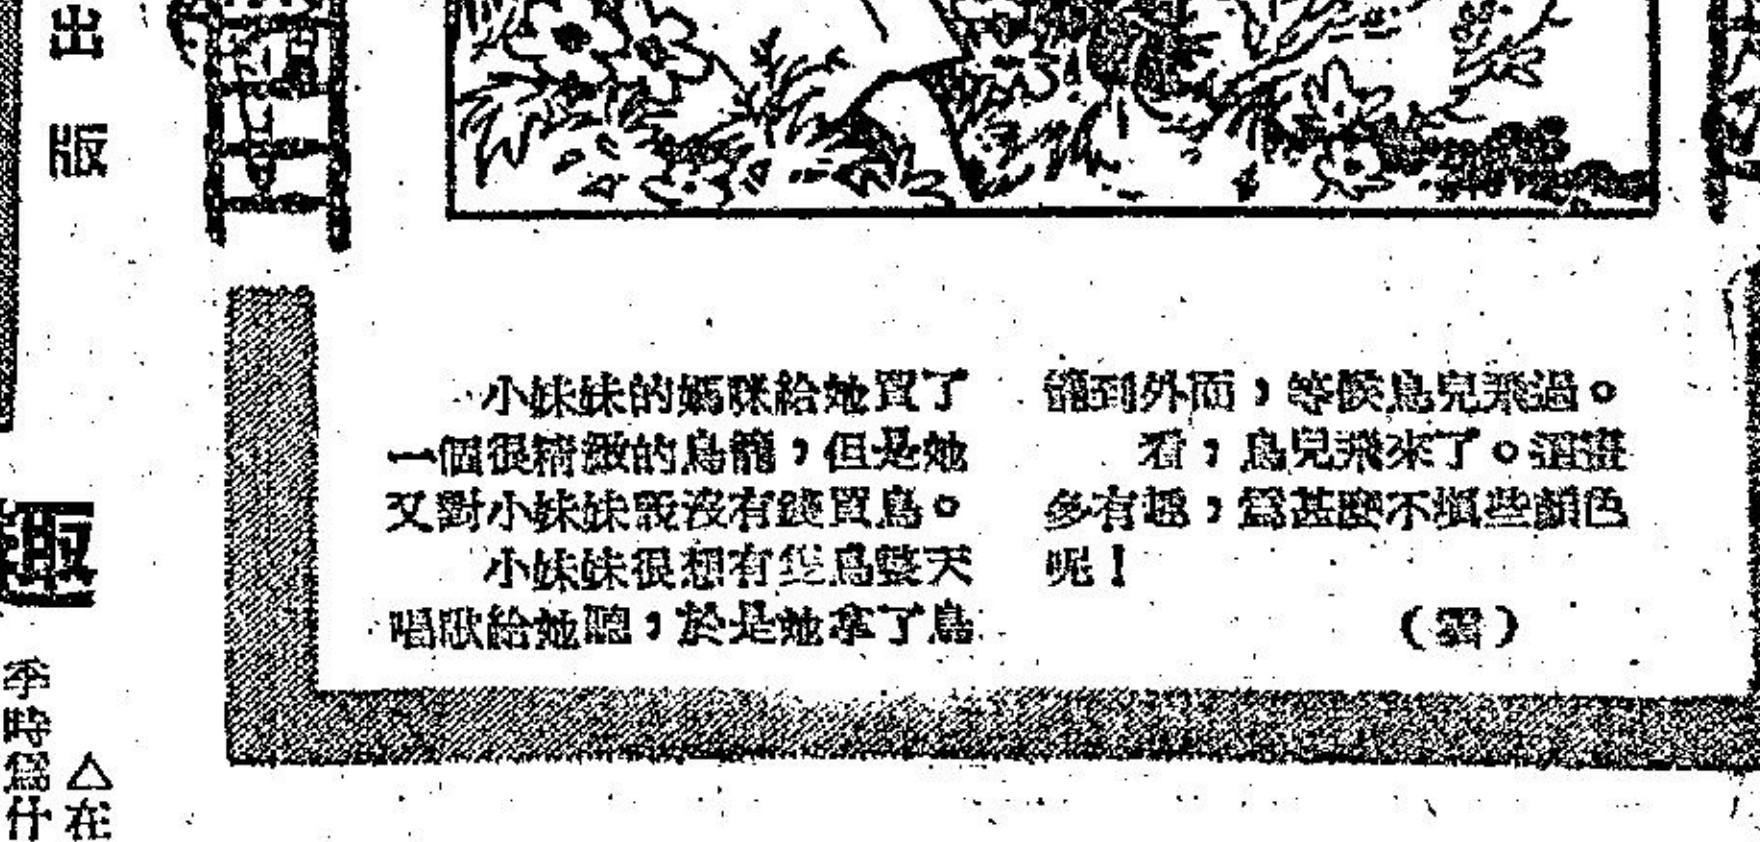 出版
小妹妹的媽咪給她買了
一個很精緻的鳥籠，但是她
又對小妹妹說沒有錢買鳥。
小妹妹很想有隻鳥整天
唱歌給她聽，於是她拿了鳥
籠到外面，等候鳥兒飛過。
看，鳥兒飛來了。這畫
多有趣，為甚麼不填些顏色
呢！
趣
△在
季時為什